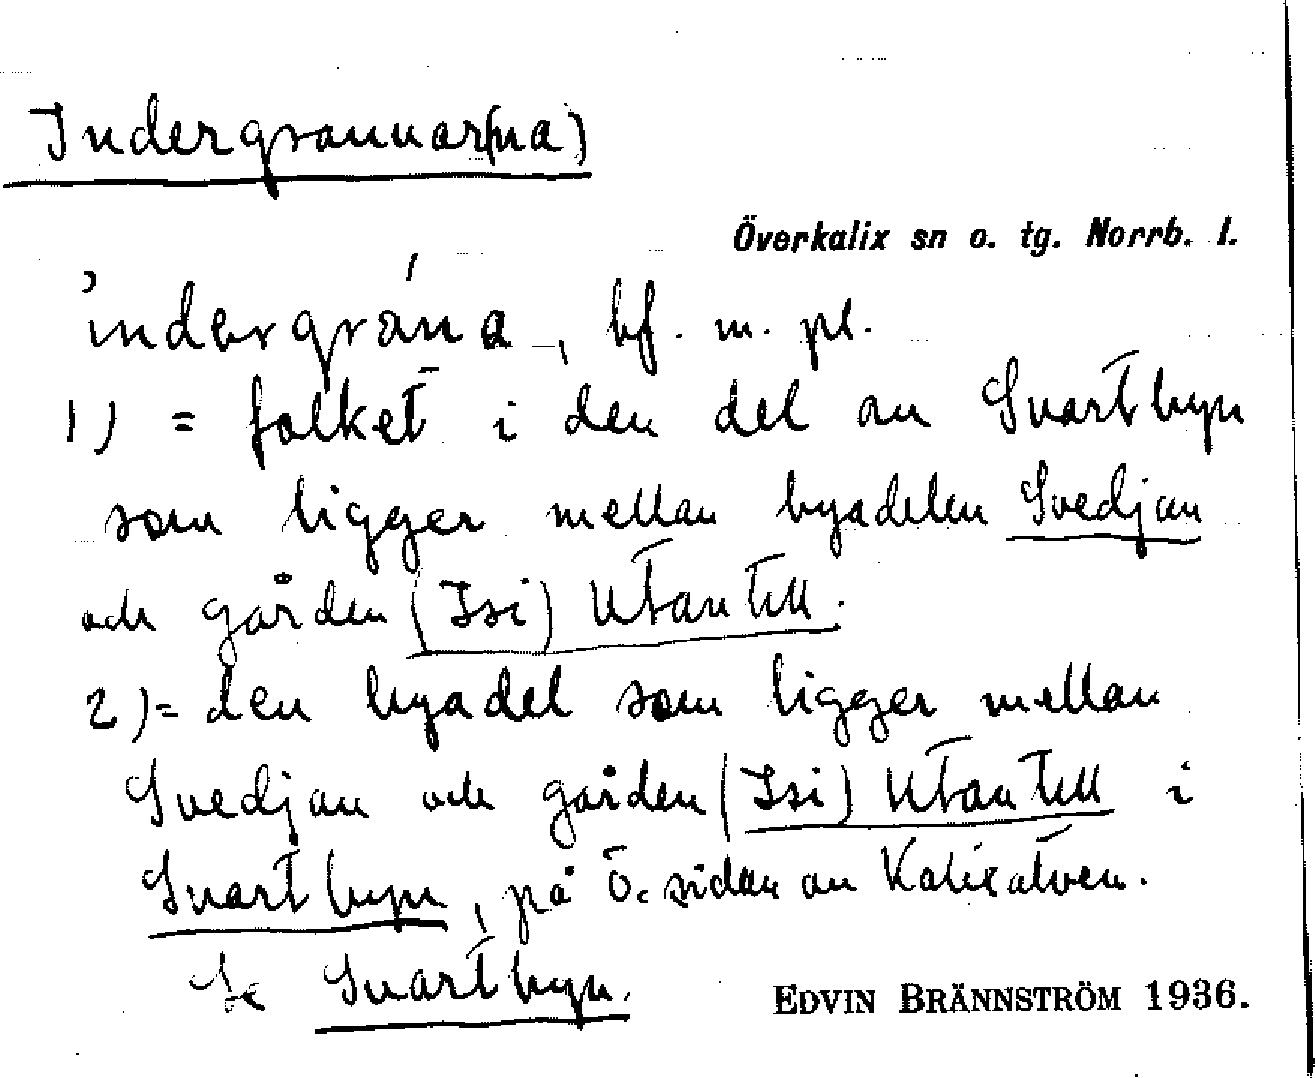 Indergrannar(na)
Överkalix sn o. tg. Norrb. l.
indergrána, bf. m. pl.
1) = folket i den del av Svartbyn
som ligger mellan byadelen Svedjan
och gården (Isi) Utantill.
2) = den byadel som ligger mellan
Svedjan och gården (Isi) Utantill i
Svartbyn, på ö. sidan av Kalixälven.
Se Svartbyn.
EDVIN BRÄNNSTRÖM 1936.